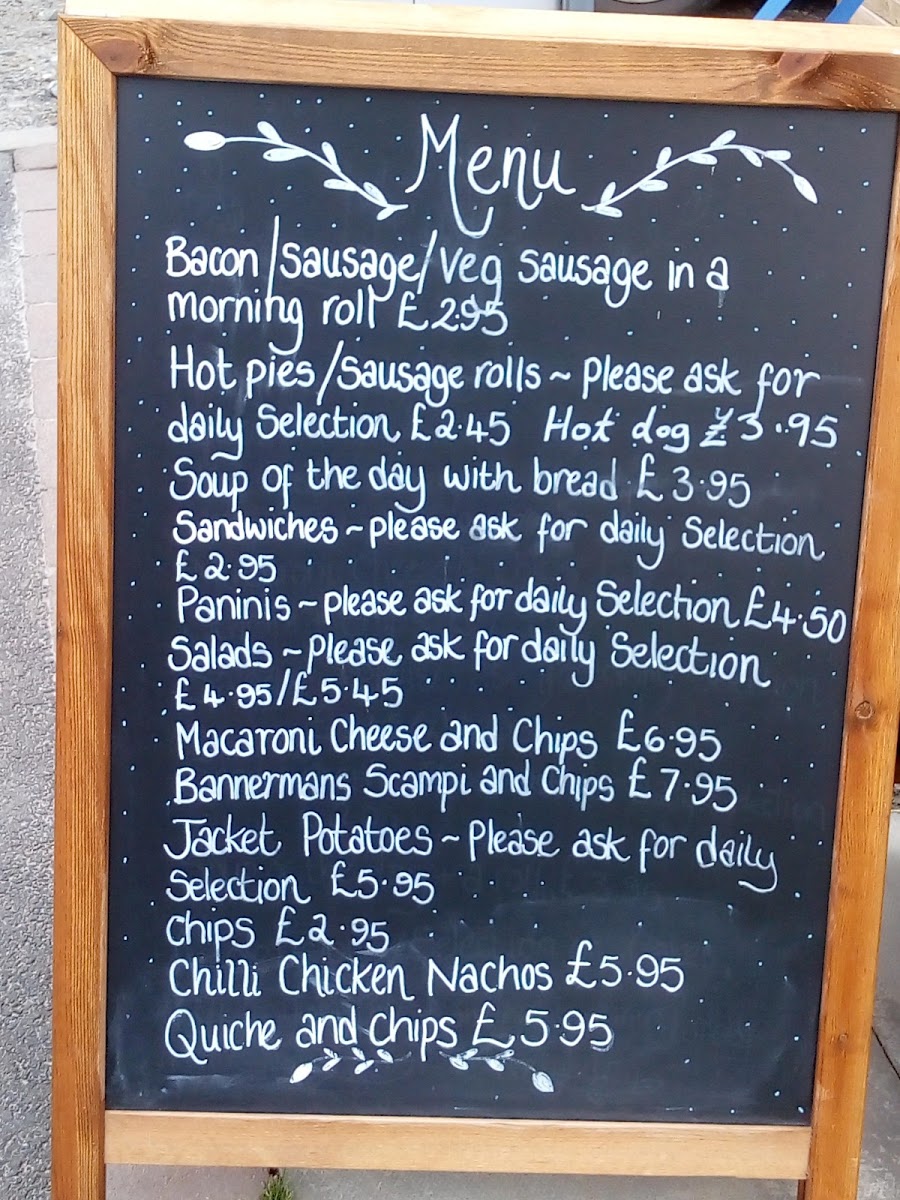 Menu
Bacon/Sausage/Veg Sausage in a
morning roll £2.95
Hot pies/Sausage rolls ~ Please ask for
daily Selection £2.45 Hot dog £3.95
Soup of the day with bread £3.95
Sandwiches ~ please ask for daily Selection
£2.95
Paninis ~ please ask for daily Selection £4.50
Salads ~ Please ask for daily Selection
£4.95/£5.45
Macaroni Cheese and Chips £6.95
Bannermans Scampi and Chips £7.95
Jacket Potatoes ~ Please ask for daily
Selection £5.95
Chips £2.95
Chilli Chicken Nachos £5.95
Quiche and Chips £5.95